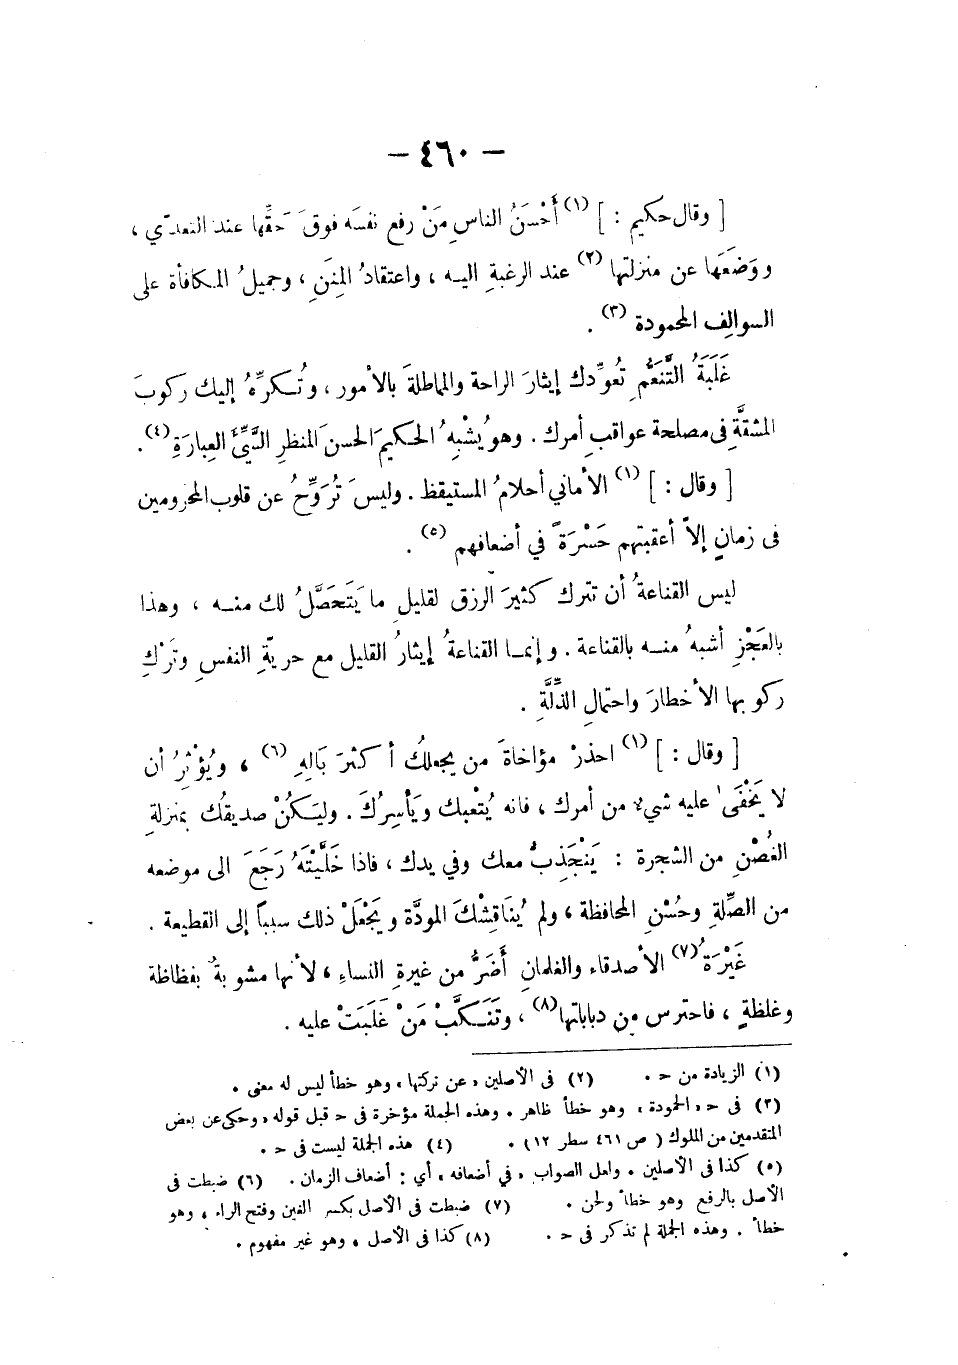 — ٤٦٠ —
[ وقال حكيم : ] (١) أَحْسَنُ الناسِ مَنْ رفع نفسَه فوقَ حَقِّها عند التعدّي ،
ووَضَعَها عن منزلتها (٢) عند الرغبةِ اليـه ، واعتقادُ المِنَنِ ، وجميلُ المكافأة على
السوالِف المحمودة (٣) .
غَلَبَةُ التَّنَعُّمِ تُعوِّدك إيثارَ الراحة والمماطلةَ بالأمور ، وتُـكرِّهُ إليك ركوبَ
المشقَّةِ فى مصلحة عواقبِ أمرك . وهو يُشْبِهُ الحـكيمَ الحسنَ المنظرِ السَّيِّئَ العِبارَةِ (٤) .
[ وقال : ] (١) الأماني أحلامُ المستيقظ . وليسَ تُرَوِّحُ عن قلوب المحرومين
فى زمانٍ إلاَّ أعقبتهم حَسْرَةً في أضعافهم (٥) .
ليس القناعةُ أن تترك كثيرَ الرزق لقليلِ ما يَتَحَصَّلُ لك منـه ، وهذا
بالعَجْزِ أشبهُ منـه بالقناعة . وإنمـا القناعةُ إيثارُ القليل مع حريةِ النفسِ وتَرْكِ
ركوبها الأخطارَ واحتمالِ الذِّلَّةِ .
[ وقال : ] (١) احذرْ مؤاخاةَ من يجعلُك أكثرَ بَالِهِ (٦) ، ويُؤْثِرُ أن
لا يَخْفَى عليه شيء من أمرك ، فانه يُتْعبك ويَأْسِرُكَ . وليَـكُنْ صديقُك بمنزلةِ
الغُصْنِ من الشجرة : يَنْجَذِبُ معك وفي يدك ، فاذا خَلَّيْتَهُ رَجَعَ الى موضعه
من الصِّلةِ وحُسْنِ المحافظة ، ولم يُناقِشْكَ المودَّة ويَجْعَلْ ذلك سبباً إلى القطيعة .
غَيْرَةُ (٧) الأصدقاء والغلمانِ أَضَرُّ من غيرةِ النساءِ ، لأنها مشوبةٌ بفظاظة
وغلظةٍ ، فاحترس من دباباتها (٨) ، وتَنَـكَّبْ مَنْ غَلَبَتْ عليه .
(١) الزيادة من ح . (٢) فى الأصلين « عن تركتها » وهو خطأ ليس له معنى .
(٣) فى ح « الحمودة » وهو خطأ ظاهر . وهذه الجملة مؤخرة فى ح قبل قوله « وحكى عن بعض
المتقدمين من الملوك ( ص ٤٦١ سطر ١٢ ) . (٤) هذه الجملة ليست فى ح .
(٥) كذا فى الأصلين . ولعل الصواب « في أضعافه » أي : أضعاف الزمان . (٦) ضبطت فى
الأصل بالرفع وهو خطأ ولحن . (٧) ضبطت فى الأصل بكسر الغين وفتح الراء ، وهو
خطأ . وهذه الجملة لم تذكر فى ح . (٨) كذا فى الأصل ، وهو غير مفهوم .